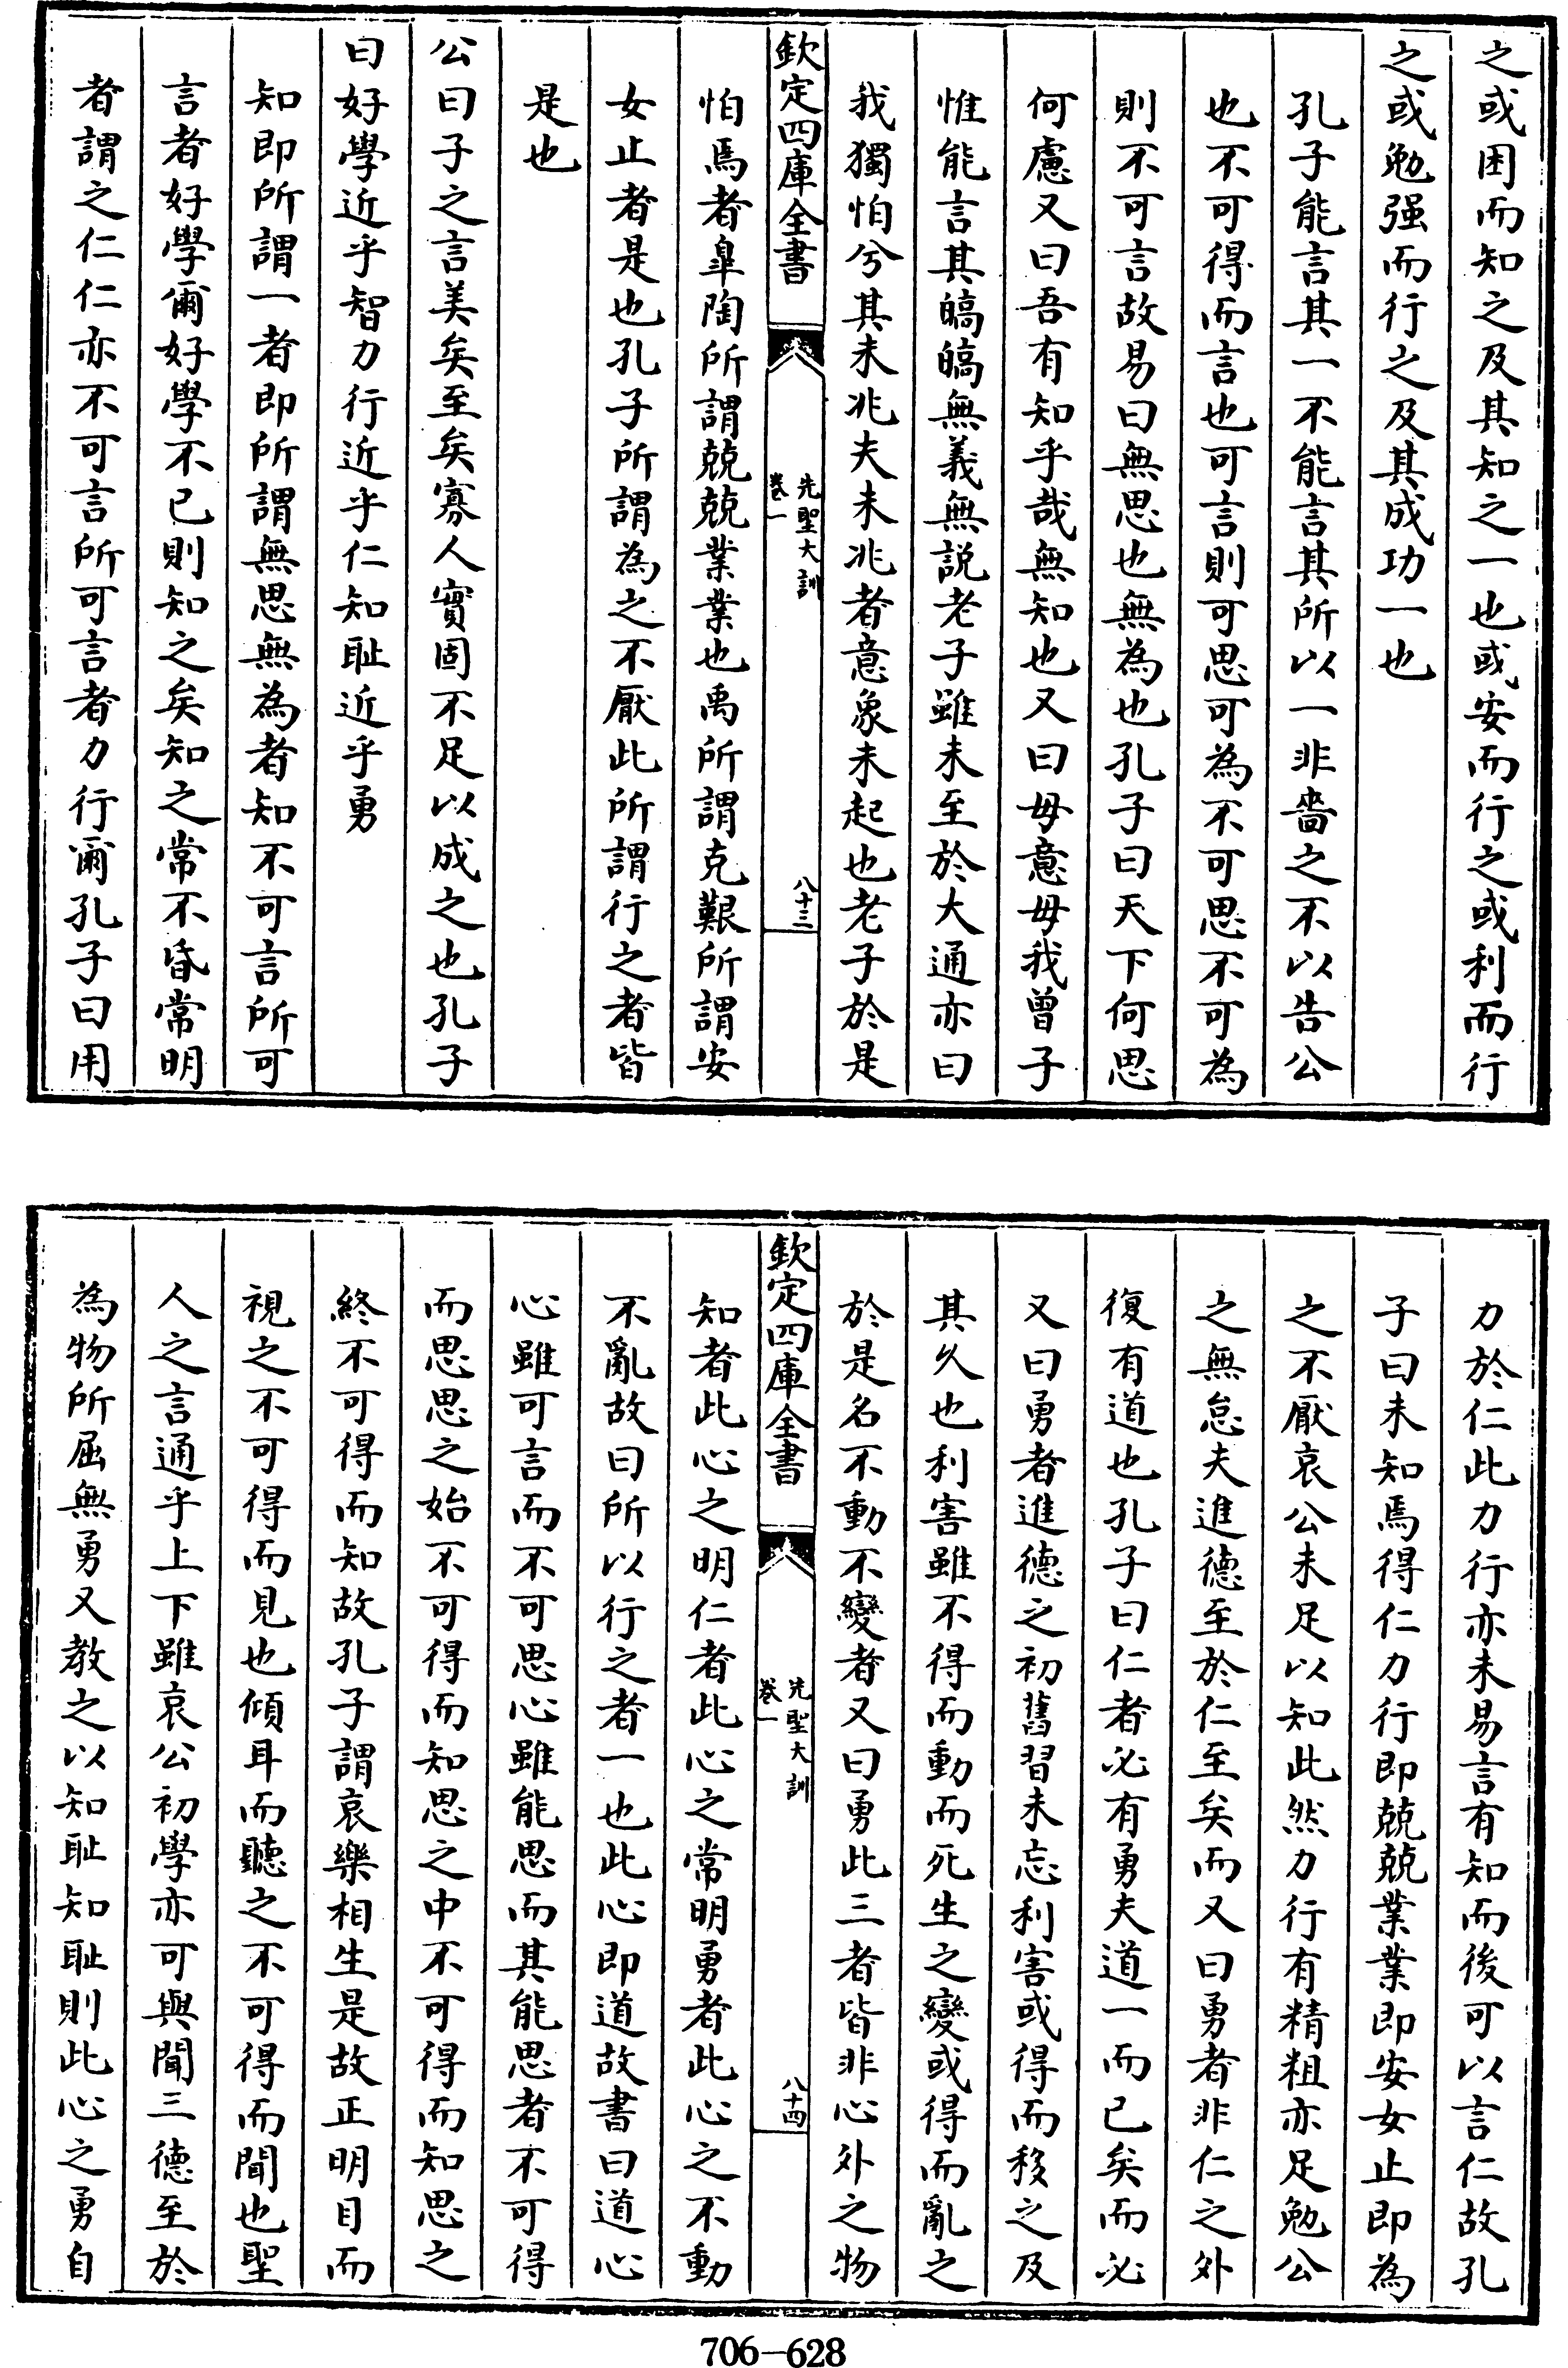 之或困而知之及其知之一也或安而行之或利而行
之或勉强而行之及其成功一也
孔子能言其一不能言其所以一非嗇之不以告公
也不可得而言也可言則可思可為不可思不可為
則不可言故易曰無思也無為也孔子曰天下何思
何慮又曰吾有知乎哉無知也又曰毋意毋我曾子
惟能言其皜皜無義無説老子雖未至於大通亦曰
我獨怕兮其未兆夫未兆者意象未起也老子於是
欽定四庫全書
先聖大訓
卷一
八十三
怕焉者臯陶所謂兢兢業業也禹所謂克艱所謂安
女止者是也孔子所謂為之不厭此所謂行之者皆
是也
公曰子之言美矣至矣寡人實固不足以成之也孔子
曰好學近乎智力行近乎仁知耻近乎勇
知即所謂一者即所謂無思無為者知不可言所可
言者好學爾好學不已則知之矣知之常不昏常明
者謂之仁仁亦不可言所可言者力行爾孔子曰用
力於仁此力行亦未易言有知而後可以言仁故孔
子曰未知焉得仁力行即兢兢業業即安女止即為
之不厭哀公未足以知此然力行有精粗亦足勉公
之無怠夫進德至於仁至矣而又曰勇者非仁之外
復有道也孔子曰仁者必有勇夫道一而已矣而必
又曰勇者進德之初舊習未忘利害或得而移之及
其久也利害雖不得而動而死生之變或得而亂之
於是名不動不變者又曰勇此三者皆非心外之物
欽定四庫全書
先聖大訓
卷一
八十四
知者此心之明仁者此心之常明勇者此心之不動
不亂故曰所以行之者一也此心即道故書曰道心
心雖可言而不可思心雖能思而其能思者不可得
而思思之始不可得而知思之中不可得而知思之
終不可得而知故孔子謂哀樂相生是故正明目而
視之不可得而見也傾耳而聽之不可得而聞也聖
人之言通乎上下雖哀公初學亦可與聞三德至於
為物所屈無勇又教之以知耻知耻則此心之勇自
706-628